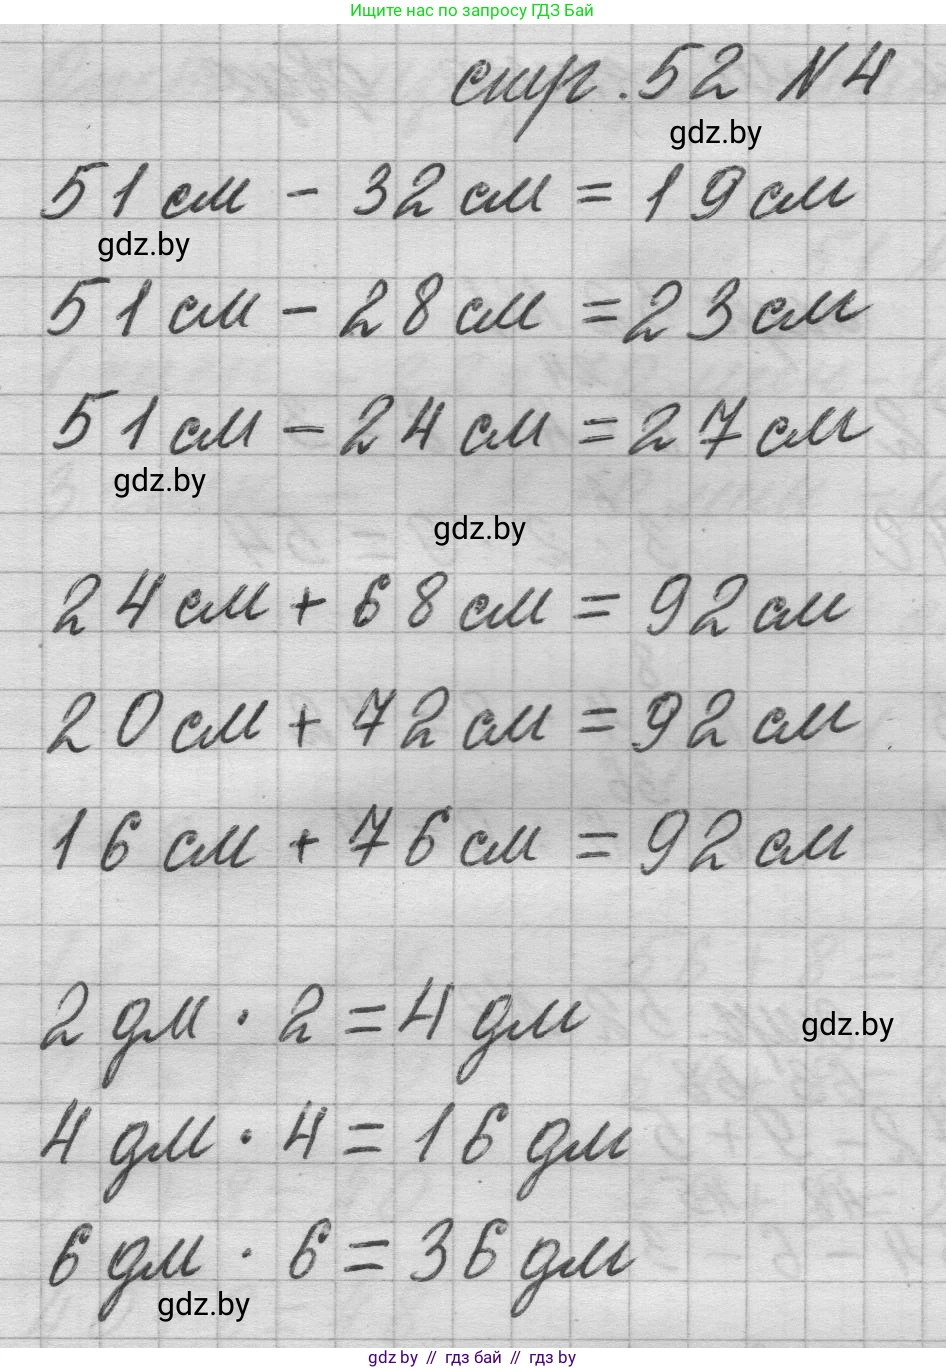 Ищите нас по запросу ГДЗ Бай
стр. 52 N 4
gdz.by
51 см - 32 см = 19 см
gdz.by
51 см - 28 см = 23 см
51 см - 24 см = 27 см
gdz.by
gdz.by
24 см + 68 см = 92 см
20 см + 72 см = 92 см
16 см + 76 см = 92 см
2 дм · 2 = 4 дм
gdz.by
4 дм · 4 = 16 дм
6 дм · 6 = 36 дм
gdz.by
gdz by // гдз бай // гдз by